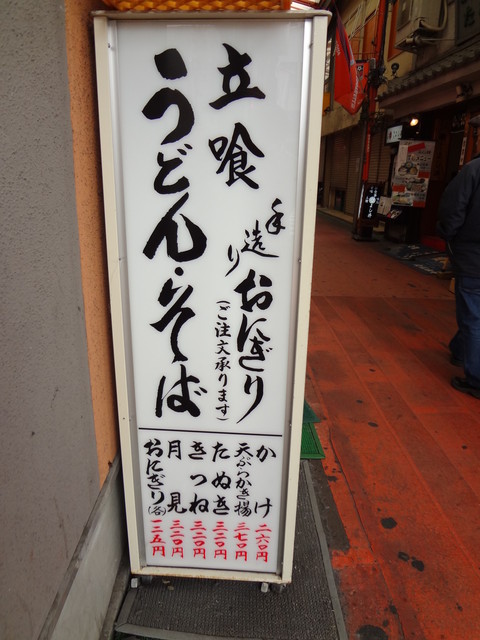 立喰
うどん・そば
手造り
おにぎり
(ご注文承ります)
かけ 二六〇円
天ぷらかき揚 三七〇円
たぬき 三二〇円
きつね 三二〇円
月見 三二〇円
おにぎり(各) 一二五円